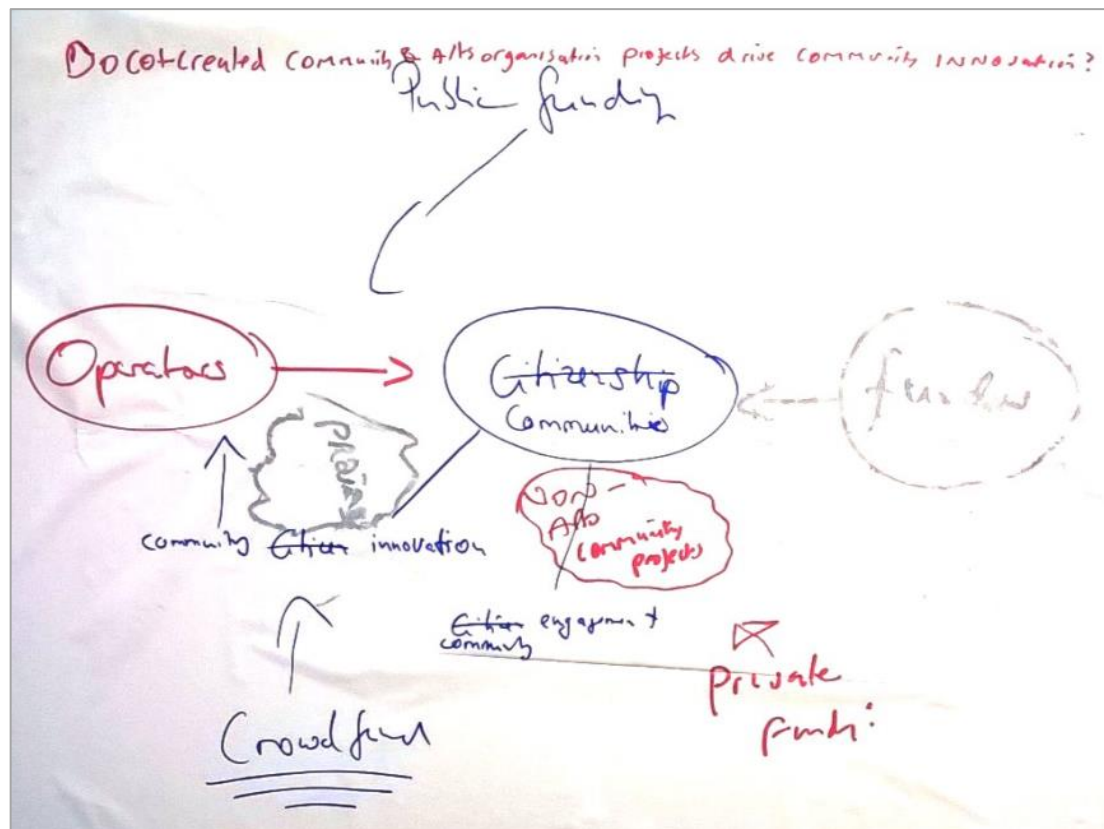 Do cot-created community & Arts organisation projects drive community INNOvation?
Public funding
Operators
Citizenship
Communities
funder
community Citizen innovation
NON-
Arts
community
projects
Citizen engagement
community
Private
Crowdfund